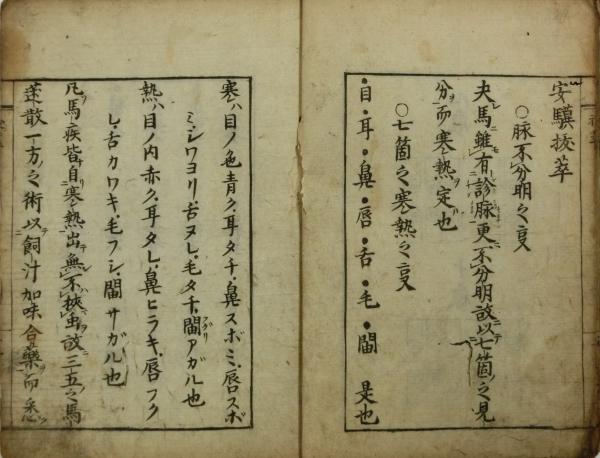 安驥抜萃
○脉不分明之叓
夫馬雖有診脉更不分明故以七箇之見
分而寒熱定也
○七箇之寒熱之叓
目・耳・鼻・唇・舌・毛・䦚 是也
寒ハ目ノ色青ク耳タチ鼻スボミ唇スボ
ミシワヨリ舌ヌレ毛タチ䦚アガル也
熱ハ目ノ内赤ク耳タレ鼻ヒラキ唇フク
レ舌カワキ毛フシ䦚サガル也
凡馬疾皆自寒熱出無不挾虫故三五之馬
薬散一方之術以飼汁加味合藥而悉